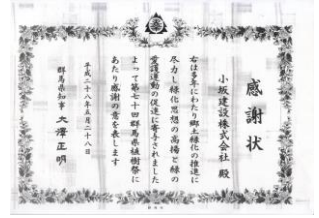 感謝状
小坂建設株式会社 殿
右は多年にわたり郷土緑化の推進に
尽力し緑化思想の高揚と緑の
愛護運動の促進に寄与されました
よって第七十回群馬県植樹祭に
あたり感謝の意を表します
平成二十八年五月二十八日
群馬県知事 大澤正明